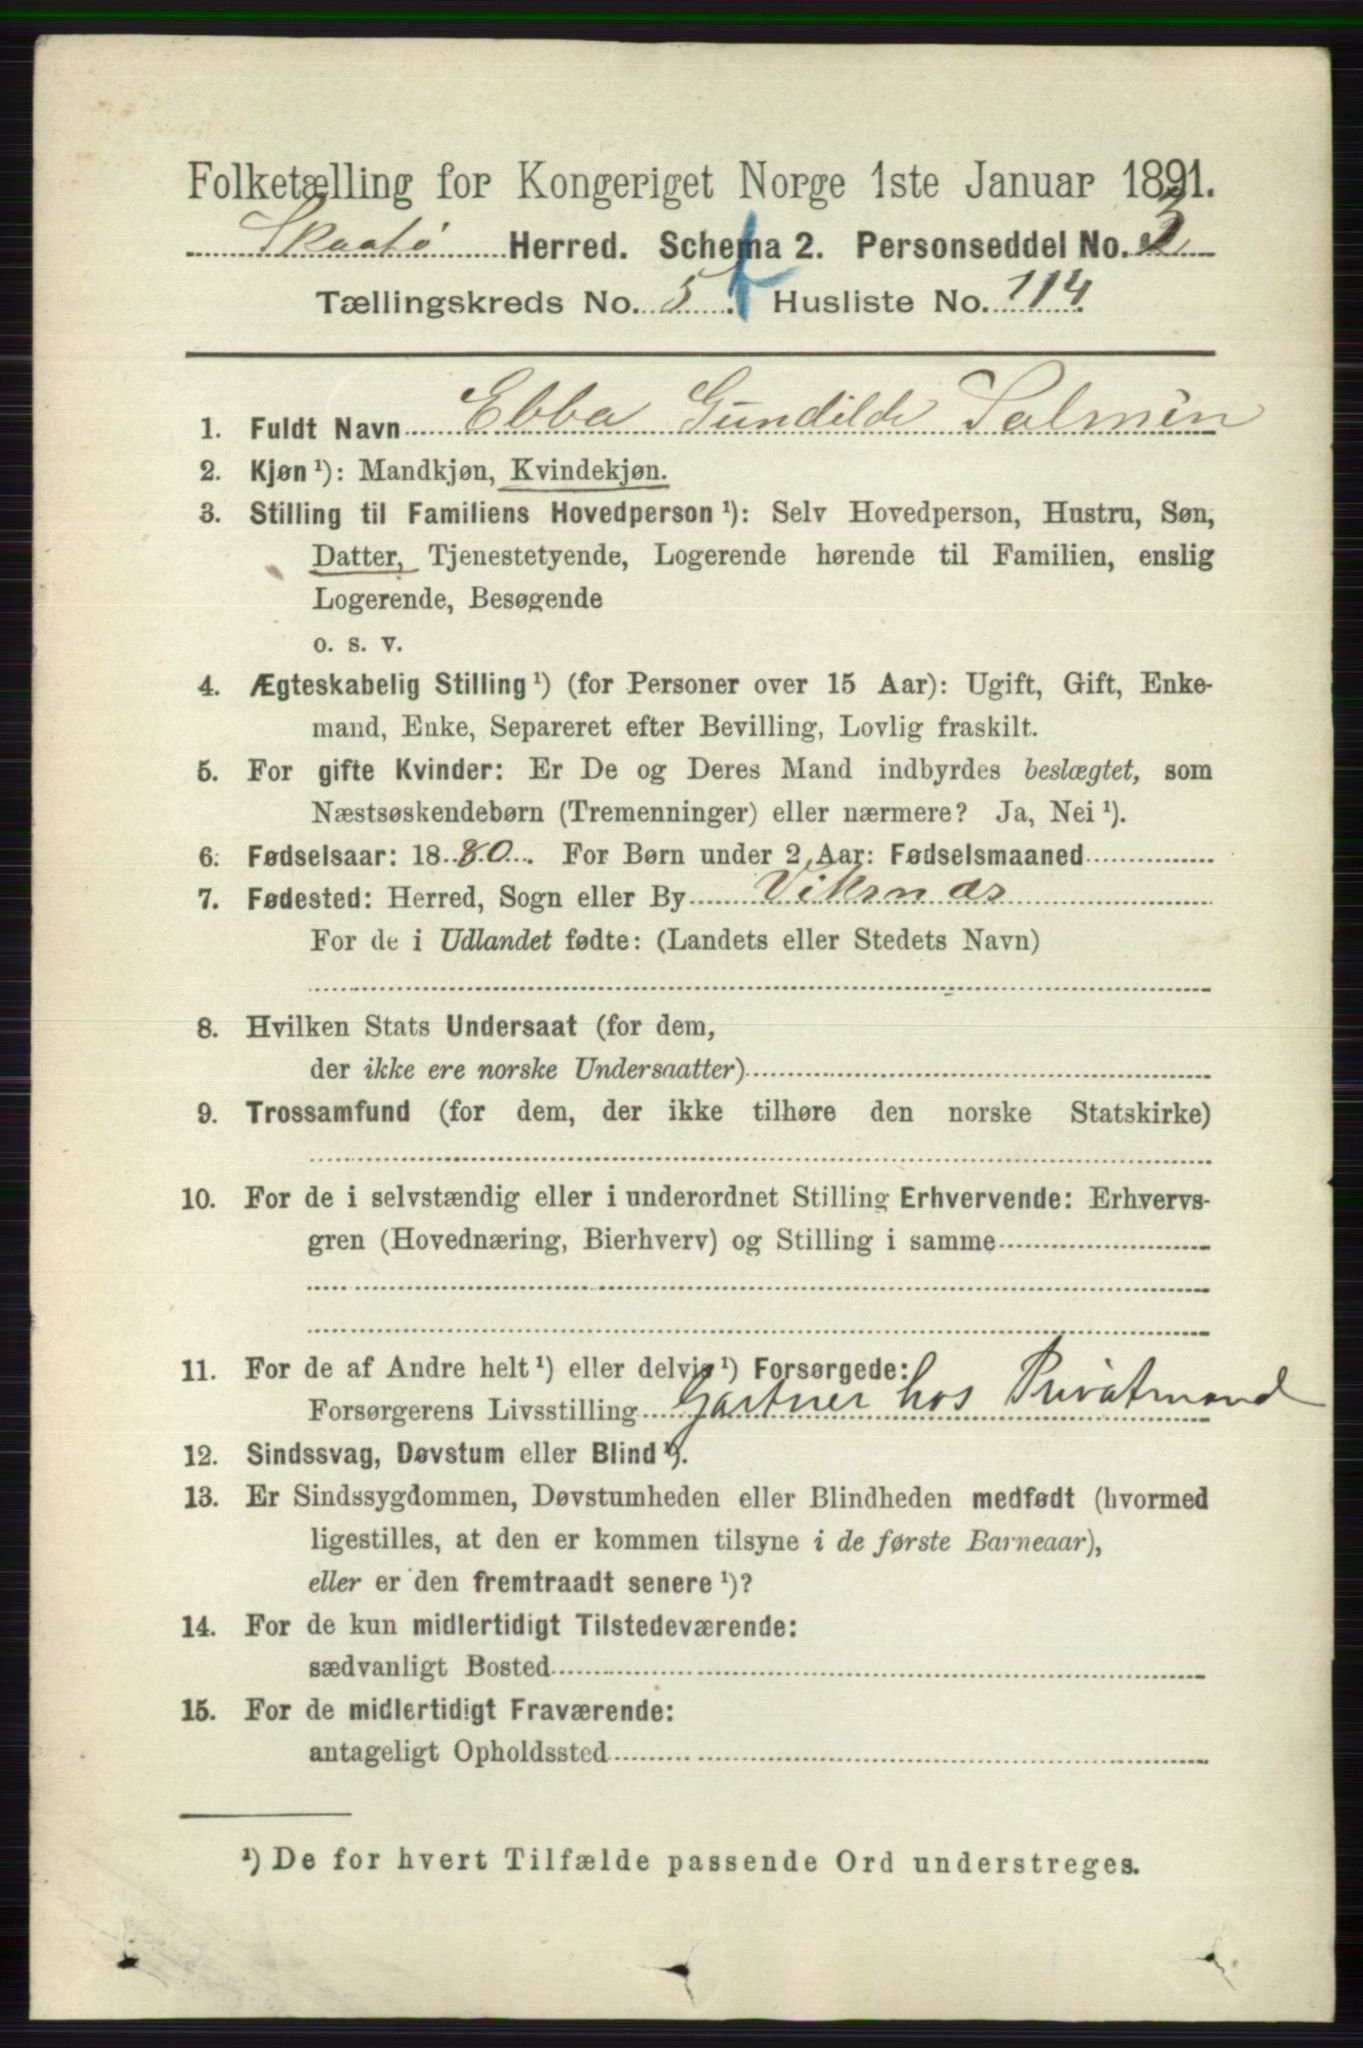 Folketælling for Kongeriget Norge 1ste Januar 1891.
Skaatø Herred. Schema 2. Personseddel No. 3
Tællingskreds No. 5. Husliste No. 114.
1. Fuldt Navn Ebba Gundilde Salmén
2. Kjøn ¹): Mandkjøn, Kvindekjøn.
3. Stilling til Familiens Hovedperson ¹): Selv Hovedperson, Hustru, Søn,
Datter, Tjenestetyende, Logerende hørende til Familien, enslig
Logerende, Besøgende
o. s. v.
4. Ægteskabelig Stilling ¹) (for Personer over 15 Aar): Ugift, Gift, Enke-
mand, Enke, Separeret efter Bevilling, Lovlig fraskilt.
5. For gifte Kvinder: Er De og Deres Mand indbyrdes beslægtet, som
Næstsøskendebørn (Tremenninger) eller nærmere? Ja, Nei ¹).
6. Fødselsaar: 1880. For Børn under 2 Aar: Fødselsmaaned
7. Fødested: Herred, Sogn eller By Viksnæs
For de i Udlandet fødte: (Landets eller Stedets Navn)
8. Hvilken Stats Undersaat (for dem,
der ikke ere norske Undersaatter)
9. Trossamfund (for dem, der ikke tilhøre den norske Statskirke)
10. For de i selvstændig eller i underordnet Stilling Erhvervende: Erhvervs-
gren (Hovednæring, Bierhverv) og Stilling i samme
11. For de af Andre helt ¹) eller delvis ¹) Forsørgede:
Forsørgerens Livsstilling Gartner hos Privatmand
12. Sindssvag, Døvstum eller Blind ¹).
13. Er Sindssygdommen, Døvstumheden eller Blindheden medfødt (hvormed
ligestilles, at den er kommen tilsyne i de første Barneaar),
eller er den fremtraadt senere ¹)?
14. For de kun midlertidigt Tilstedeværende:
sædvanligt Bosted
15. For de midlertidigt Fraværende:
antageligt Opholdssted
¹) De for hvert Tilfælde passende Ord understreges.